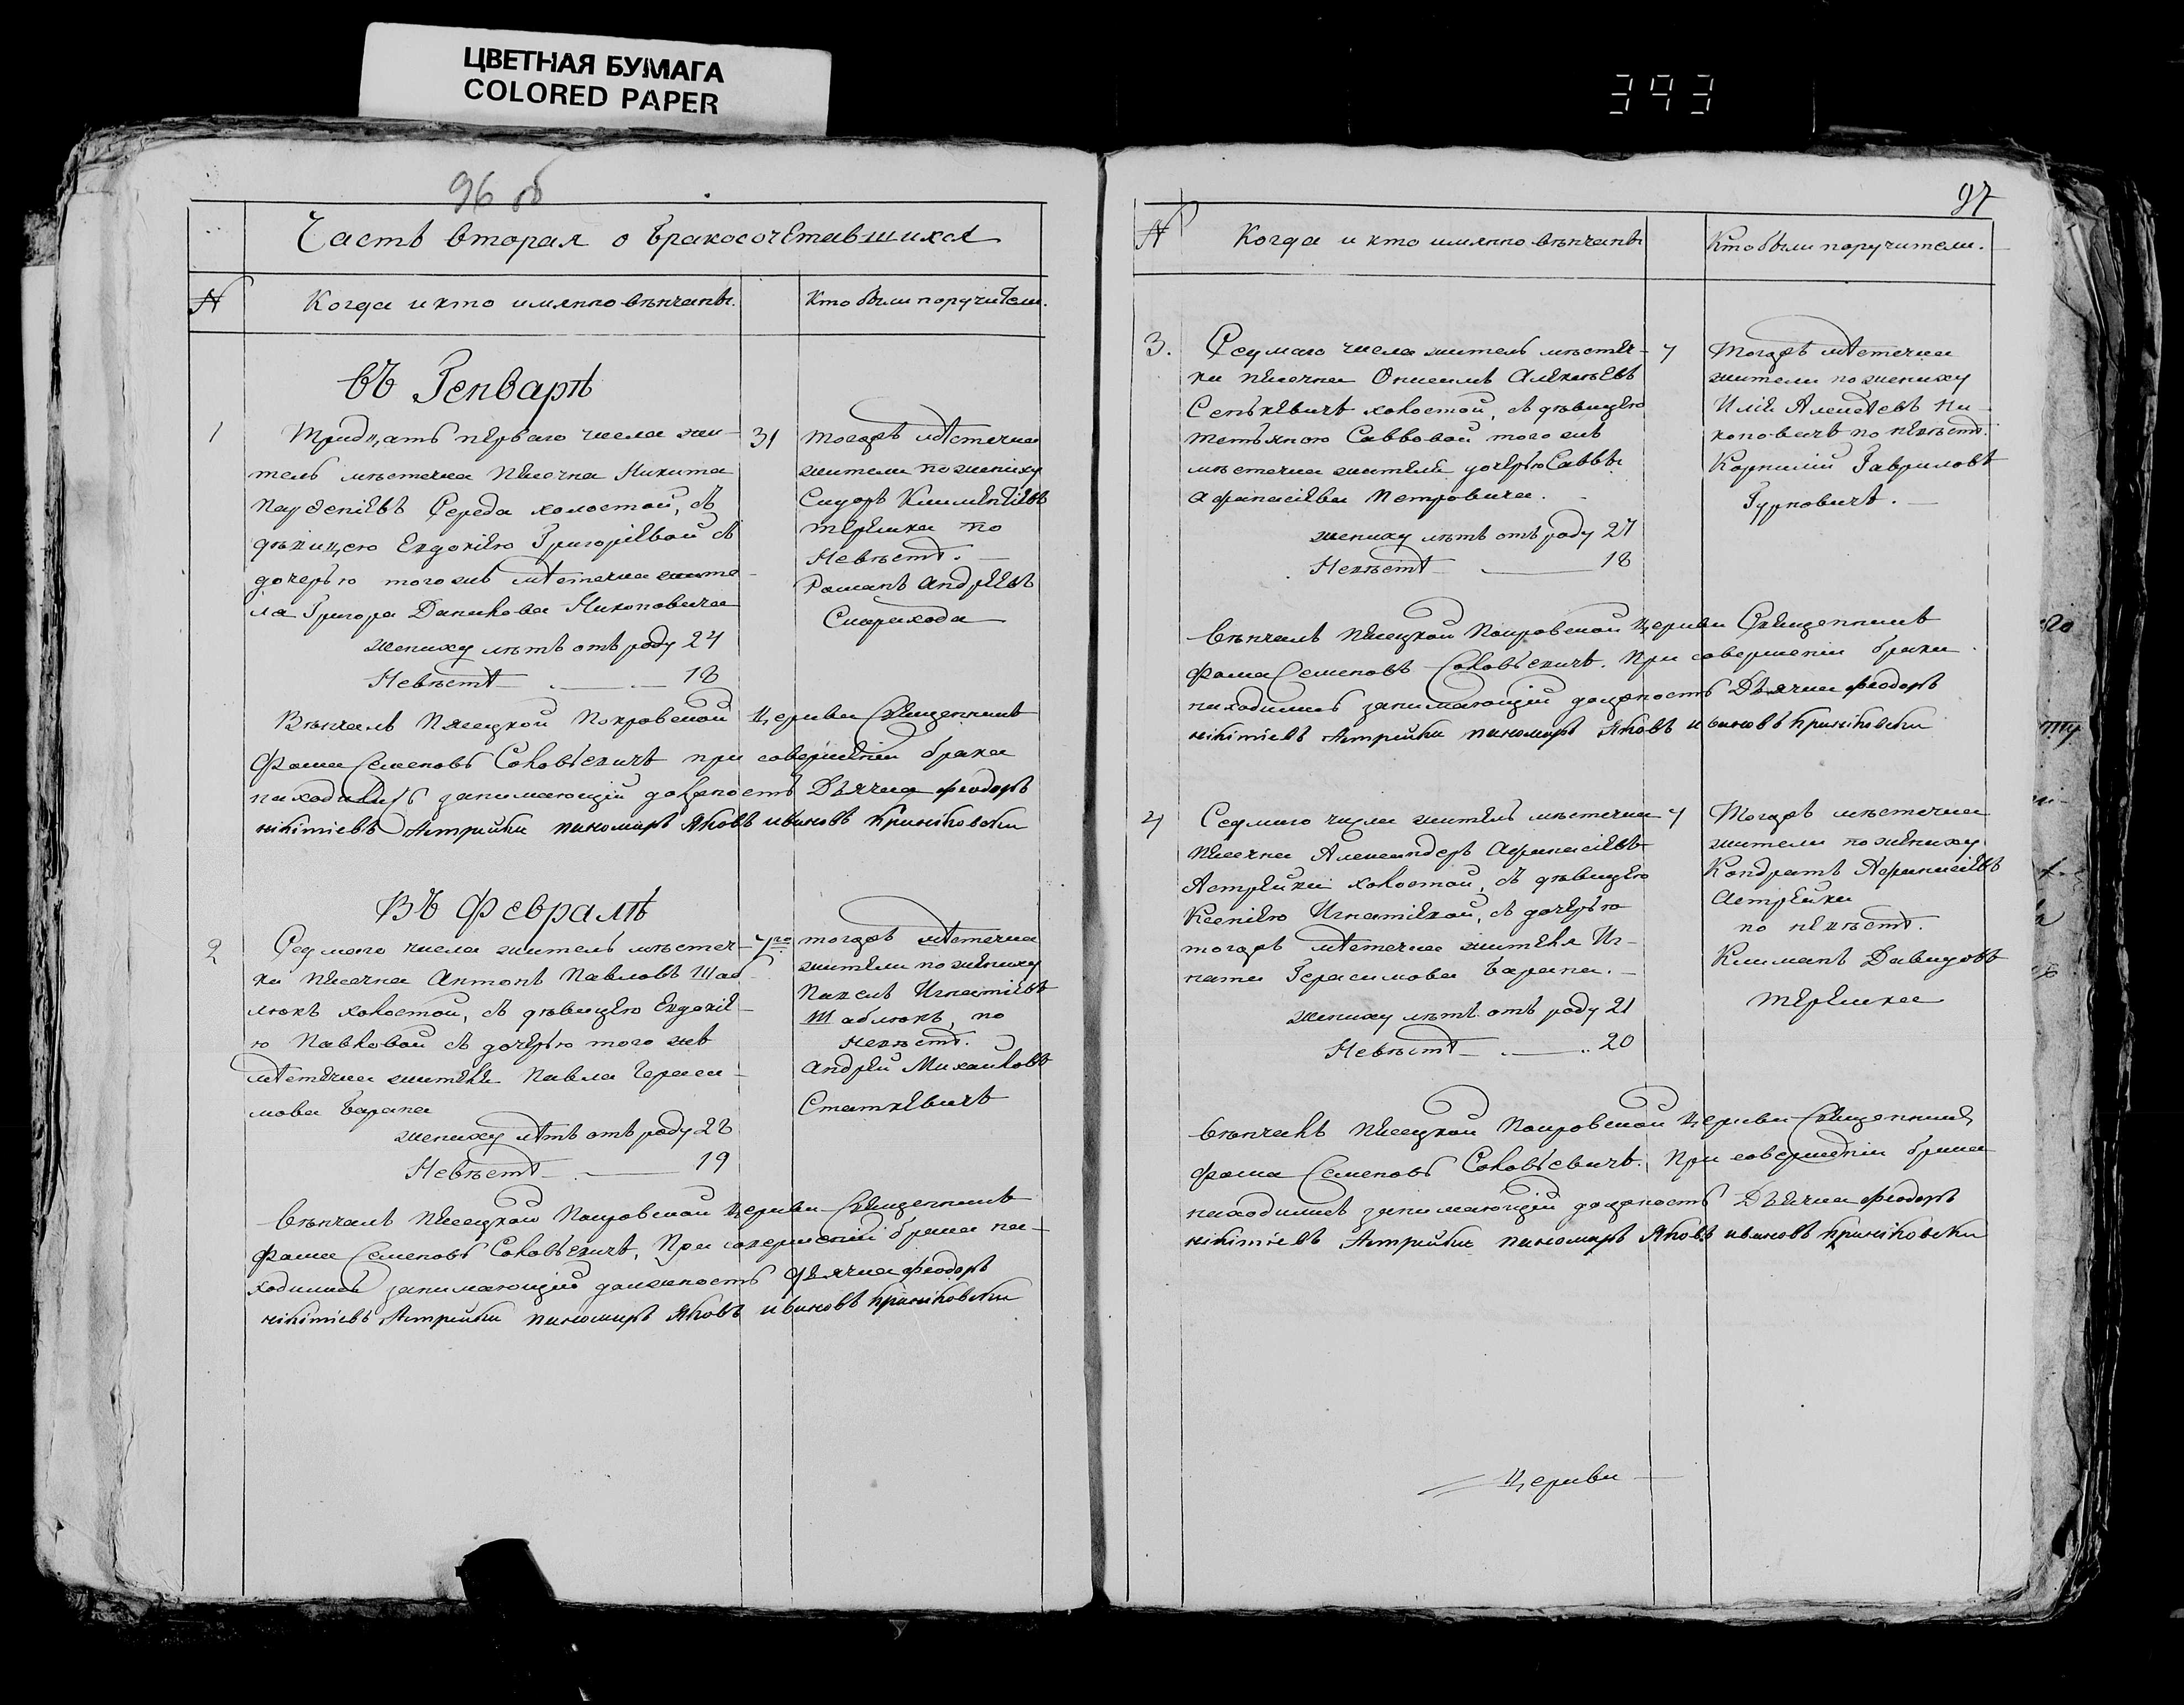 ЦВЕТНАЯ БУМАГА
COLORED PAPER
393
96 об
Часть вторая о бракосочетавшихся
№ Когда и кто имянно вѣнчаны. Кто были поручители.
въ Генварѣ
1 Тридцать перваго числа жи- 31
тель мѣстечка Песочна Никита
Парѳеніевъ Середа холостой, съ
дѣвицею Евдокіею Григоріевой съ
дочерью того жъ мѣстечка жите-
ля Григора Данилова Никоновича
жениху лѣтъ отъ роду 24
Невѣстѣ 18
тогожъ мѣстечка
жители по жениху
Сидоръ Климентіевъ
Терешка по
Невѣстѣ.
Романъ Андреевъ
Скорихода
Вѣнчалъ Песецкой Покровской Церкви Священникъ
Фома Семеновъ Соловьевичъ при совершеніи брака
находились занимающій должность Дьячка Феодоръ
нікітіевъ Астрейки пономаръ Яковъ ивановъ Криніковски
Въ Февралѣ
2 Седмого числа житель мѣстеч- 7го
ка Песочна Антонъ Павловъ Шаб-
люкъ холостой, съ дѣвицею Евдокіе-
ю Павловой съ дочерью того жъ
мѣстечка жителя Павла Гераси-
мова Барана
жениху лѣтъ отъ роду 28
Невѣстѣ 19
тогожъ мѣстечка
жители по жениху
Павелъ Игнатіевъ
Шаблюкъ, по
невѣстѣ.
Андрей Михайловъ
Статкевичъ
Вѣнчалъ Песецкой Покровской Церкви Священникъ
Фома Семеновъ Соловьевичъ, При совершеніи брака на-
ходились занимающій должность Дьячка Феодоръ
нікітіевъ Астрейки пономаръ Яковъ ивановъ Криніковски
97
№ Когда и кто имянно вѣнчаны Кто были поручители.
3. Седмаго числа житель мѣстеч- 7
ка Песочна Онисимъ Алексѣевъ
Сенькевичъ холостой, съ дѣвицею
Тетьяною Саввовой того жъ
мѣстечка жителя дочерью Саввы
Афанасіева Петровича.
жениху лѣтъ отъ роду 27
Невѣстѣ 18
Тогожъ мѣстечка
жители по жениху
Илія Алексѣевъ Ни-
коновичъ по невѣстѣ.
Корнилій Гавриловъ
Гурновичъ.
Вѣнчалъ Песецкой Покровской Церкви Священникъ
Фома Семеновъ Соловьевичъ. При совершеніи брака
находились занимающій должность Дьячка Феодоръ
нікітіевъ Астрейки пономаръ Яковъ ивановъ Криніковски
4 Седмого числа житель мѣстечка 7
Песочна Александеръ Афанасіевъ
Астрейки холостой, съ дѣвицею
Ксеніею Игнатіевой, съ дочерью
тогожъ мѣстечка жителя Иг-
ната Герасимова Барана.
жениху лѣтъ отъ роду 21
Невѣстѣ 20
Тогожъ мѣстечка
жители по жениху
Кондратъ Афанасіевъ
Астрейки
по невѣстѣ.
Климанъ Давидовъ
Терешка
Вѣнчалъ Песецкой Покровской Церкви Священникъ
Фома Семеновъ Соловьевичъ. При совершеніи брака
находились занимающій должность Дьячка Феодоръ
нікітіевъ Астрейки пономаръ Яковъ ивановъ Криніковски
Церкви